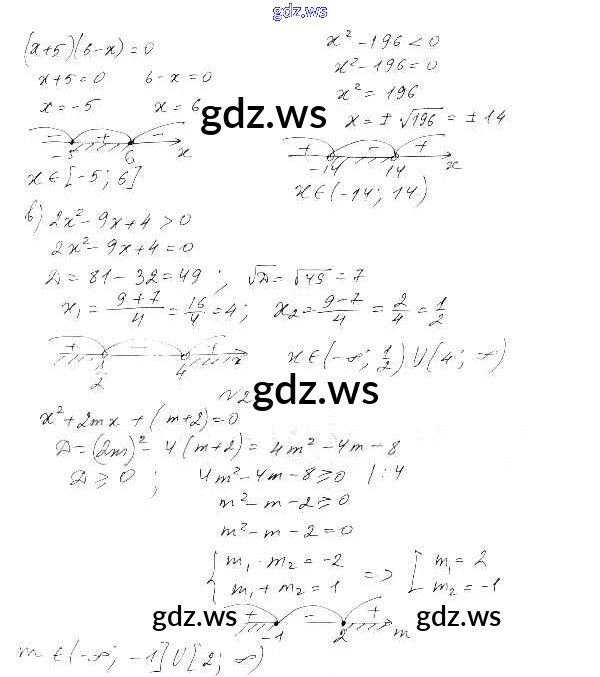 gdz.ws
(x+5)(6-x)=0
x+5=0 6-x=0
x=-5 x=6
- + -
-5 6 x
x∈[-5; 6]
x²-196<0
x²-196=0
x²=196
x=±√196=±14
+ - +
-14 14 x
x∈(-14; 14)
gdz.ws
в) 2x²-9x+4>0
2x²-9x+4=0
D=81-32=49; √D=√49=7
x₁=(9+7)/4=16/4=4; x₂=(9-7)/4=2/4=1/2
+ - +
1/2 4 x
x∈(-∞; 1/2)∪(4; ∞)
№2
gdz.ws
x²+2mx+(m+2)=0
D=(2m)²-4(m+2)=4m²-4m-8
D≥0; 4m²-4m-8≥0 |:4
m²-m-2≥0
m²-m-2=0
{ m₁·m₂=-2 => [ m₁=2
{ m₁+m₂=1 [ m₂=-1
gdz.ws gdz.ws
+ - +
-1 2 m
m∈(-∞; -1]∪[2; ∞)